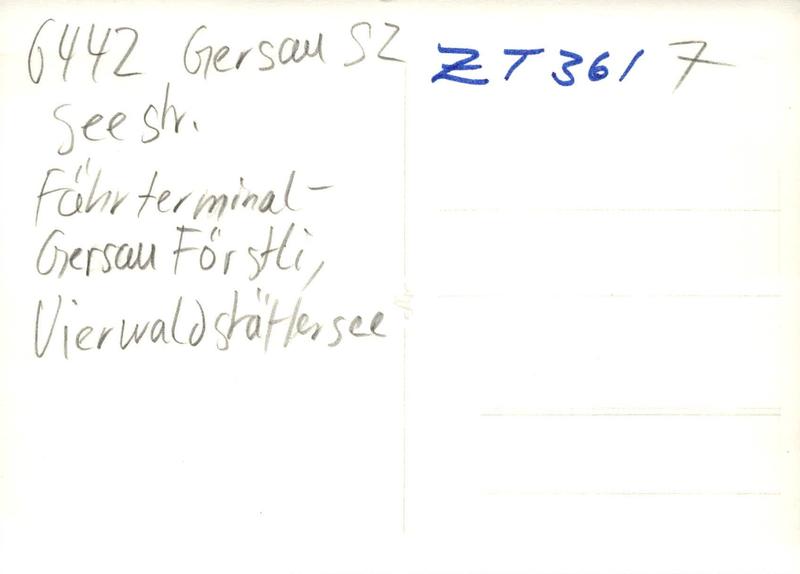 6442 Gersau SZ
Seestr.
Fährterminal-
Gersau Förstli,
Vierwaldstättersee
ZT 361 7